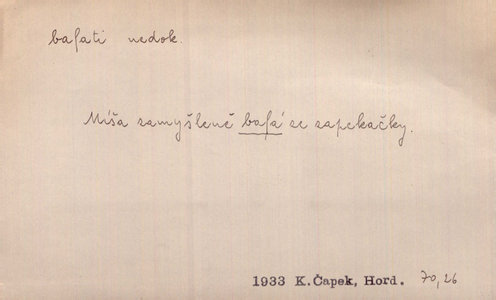 bafati nedok.
Míša zamyšleně bafá ze zapekačky.
1933 K.Čapek, Hord. 70,26